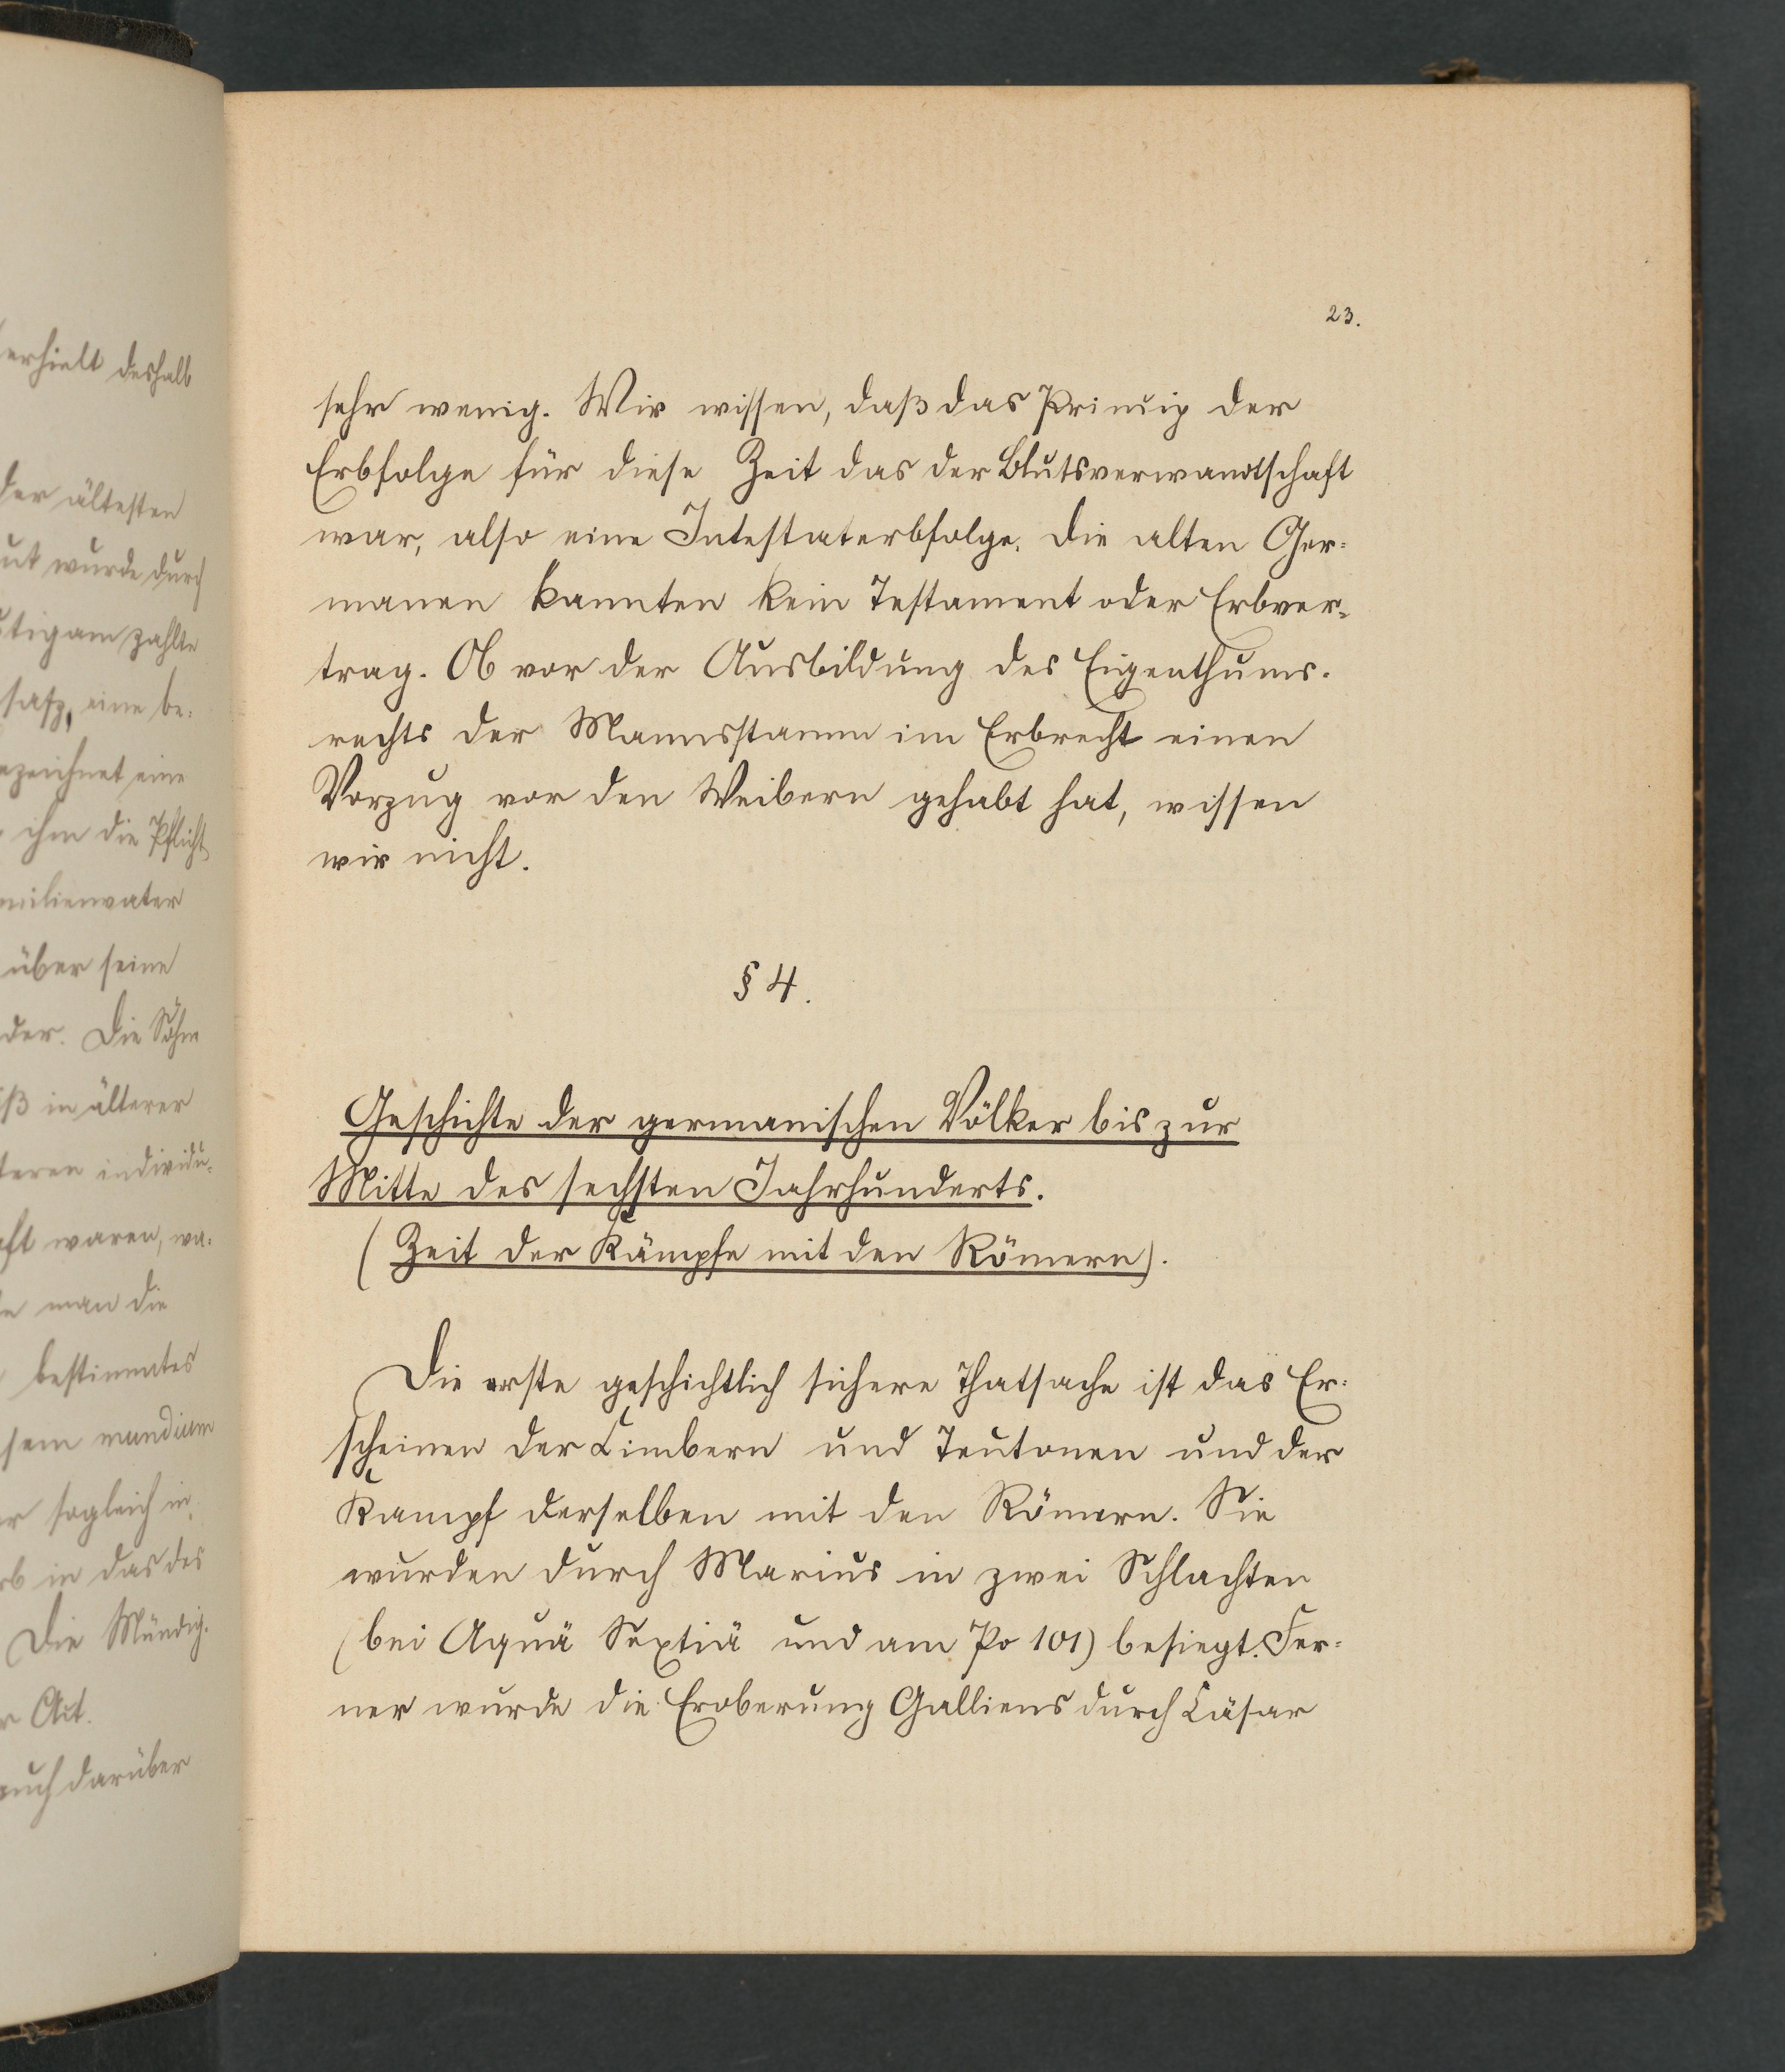 erhielt deshalb
der ältesten
wurde durch
zahlte
eine be-
eine
ihm die Pflicht
über seine
der. Die Söhne
in älterer
individu-
waren, wa-
man die
bestimmtes
mundium
sogleich in
in das des
Die Mündig-
auch darüber
23.
sehr wenig. Wir wissen, daß das Princip der
Erbfolge für diese Zeit das der Blutsverwandtschaft
war, also eine Intestaterbfolge. Die alten Ger-
manen kannten kein Testament oder Erbver-
trag. Ob vor der Ausbildung des Eigenthums-
rechts der Mannsstamm im Erbrecht einen
Vorzug vor den Weibern gehabt hat, wissen
wir nicht.
§ 4.
Geschichte der germanischen Völker bis zur
Mitte des sechsten Jahrhunderts.
(Zeit der Kämpfe mit den Römern).
Die erste geschichtlich sichere Thatsache ist das Er-
scheinen der Cimbern und Teutonen und der
Kampf derselben mit den Römern. Sie
wurden durch Marius in zwei Schlachten
(bei Aquä Sextiä und am Po 101) besiegt. Fer-
ner wurde die Eroberung Galliens durch Cäsar